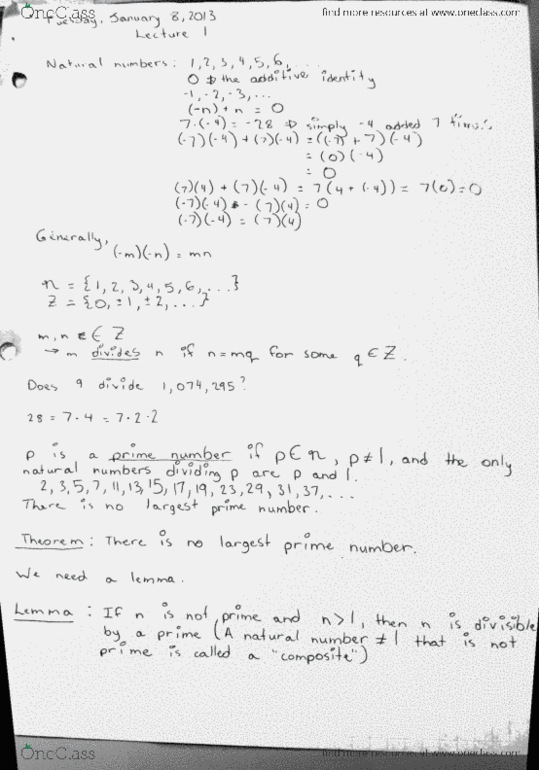 OneClass
find more resources at www.oneclass.com
Tuesday, January 8, 2013
Lecture 1
Natural numbers: 1, 2, 3, 4, 5, 6, ...
0 ⇒ the additive identity
-1, -2, -3, ...
(-n) + n = 0
7·(-4) = -28 ⇒ simply -4 added 7 times
(-7)(-4) + (7)(-4) = ((-7) + 7)(-4)
= (0)(-4)
= 0
(7)(4) + (7)(-4) = 7(4 + (-4)) = 7(0) = 0
(-7)(-4) - (7)(4) = 0
(-7)(-4) = (7)(4)
Generally,
(-m)(-n) = mn
n = {1, 2, 3, 4, 5, 6, ...}
Z = {0, ±1, ±2, ...}
m, n ∈ Z
→ m divides n if n = mq for some q ∈ Z.
Does 9 divide 1,074,295?
28 = 7·4 = 7·2·2
p is a prime number if p ∈ n, p ≠ 1, and the only
natural numbers dividing p are p and 1.
2, 3, 5, 7, 11, 13, 15, 17, 19, 23, 29, 31, 37, ...
There is no largest prime number.
Theorem: There is no largest prime number.
We need a lemma.
Lemma: If n is not prime and n > 1, then n is divisible
by a prime (A natural number ≠ 1 that is not
prime is called a "composite")
OneClass
find more resources at www.oneclass.com